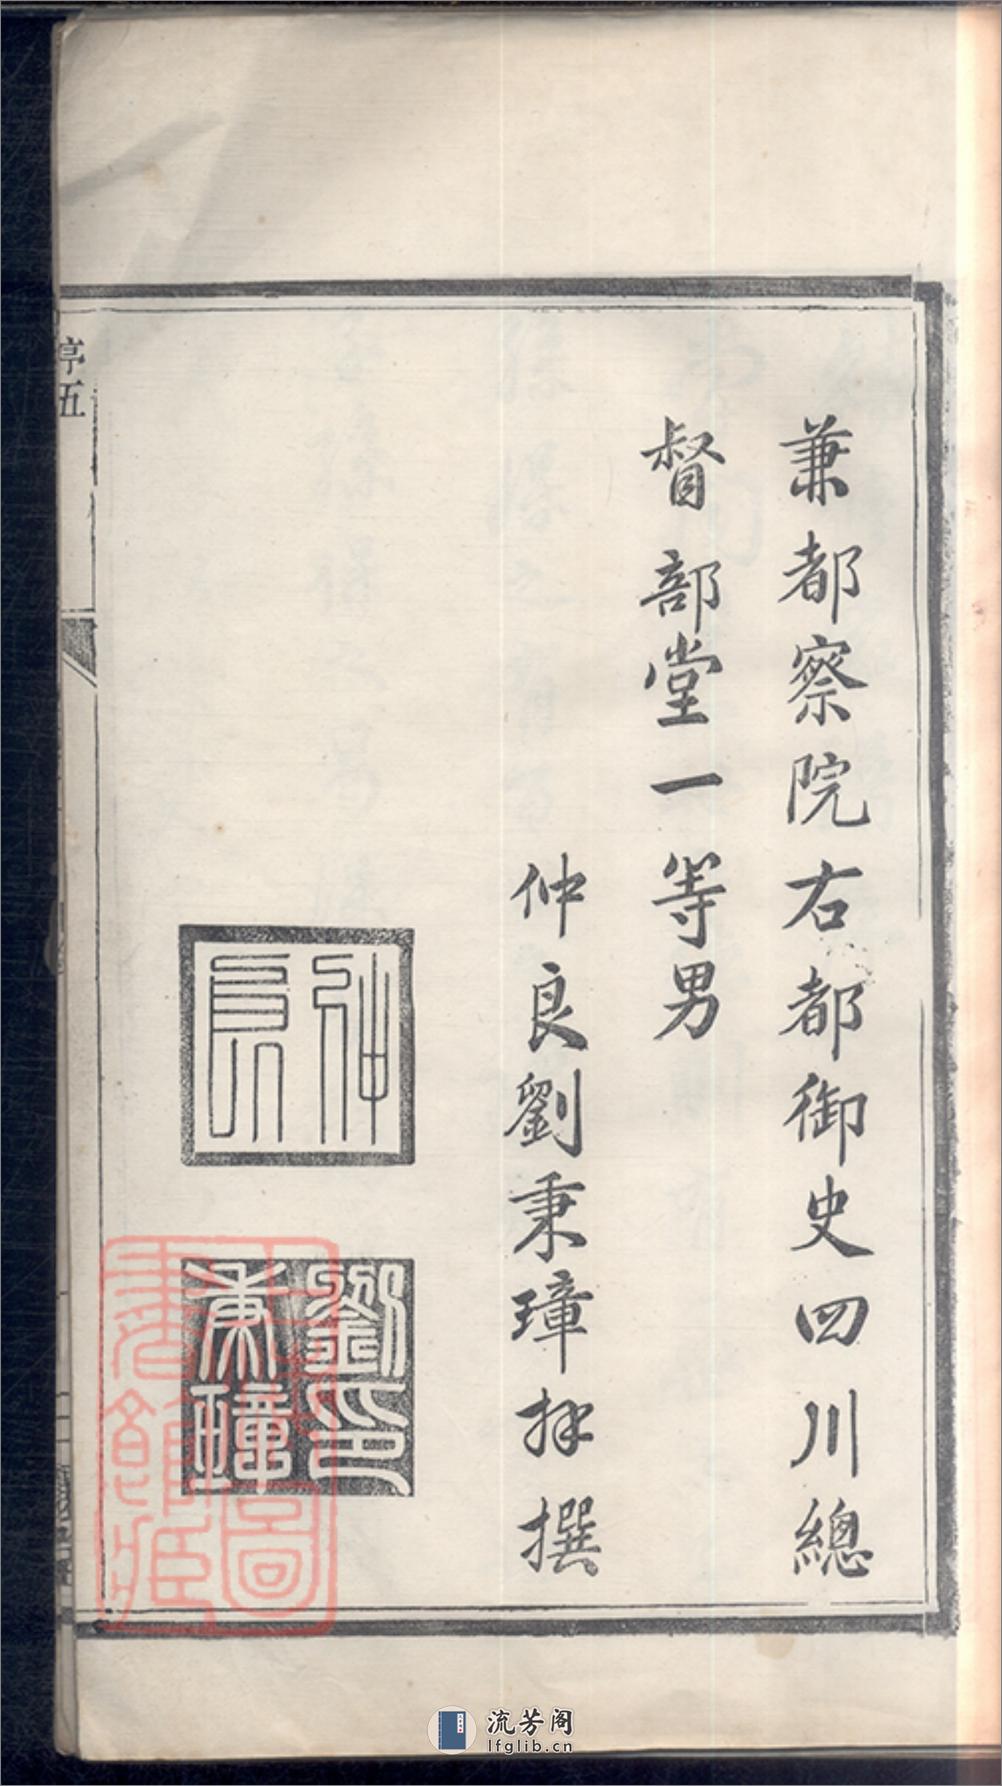 兼都察院右都御史四川總
督部堂一等男
仲良劉秉璋拜撰
仲良
劉印秉璋
五
流芳阁
lfglib.cn